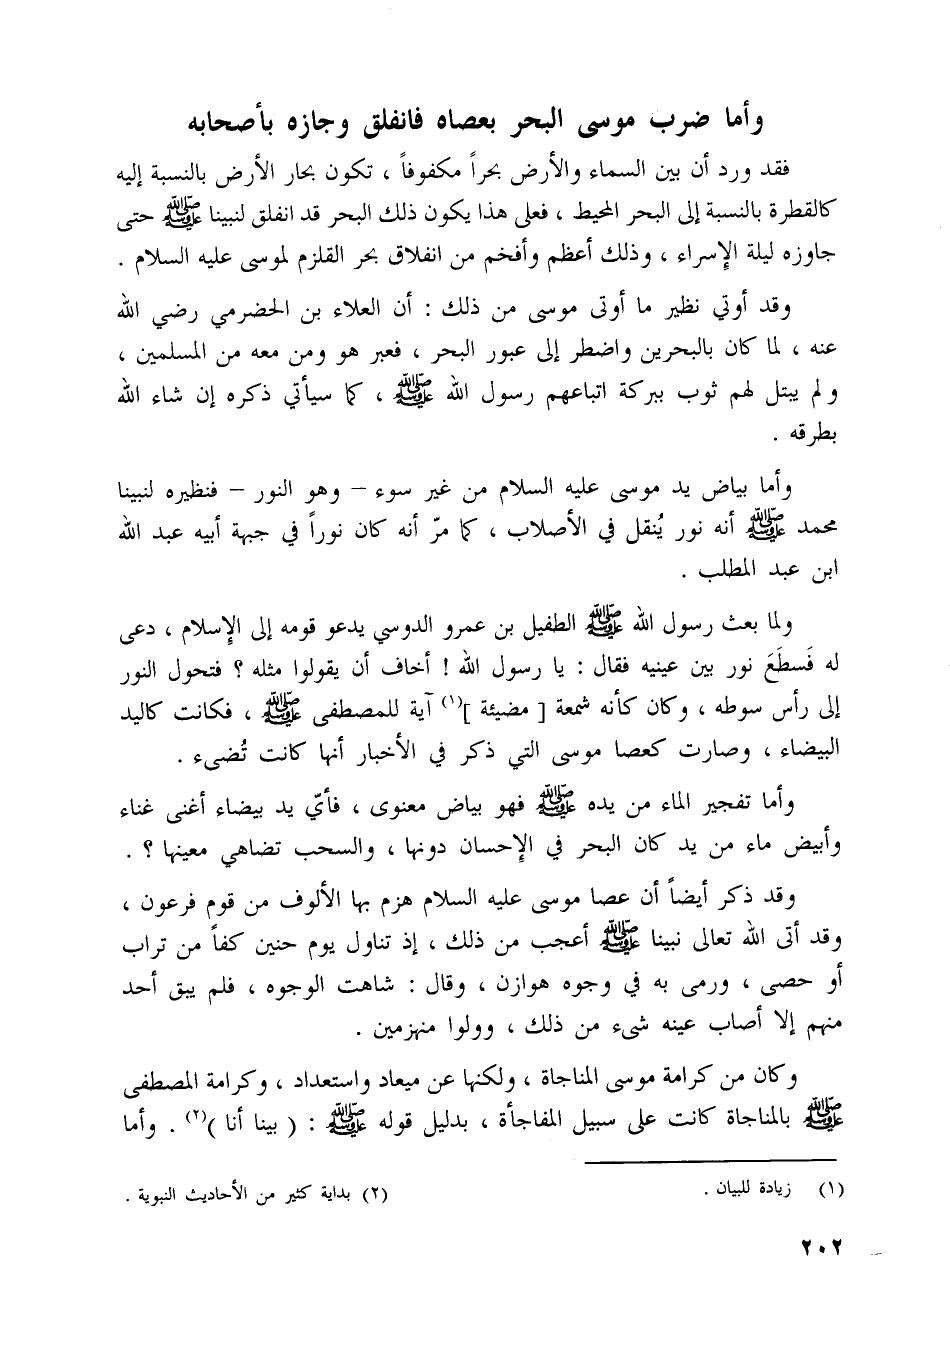 وأما ضرب موسى البحر بعصاه فانفلق وجازه بأصحابه
فقد ورد أن بين السماء والأرض بحراً مكفوفاً ، تكون بحار الأرض بالنسبة إليه
كالقطرة بالنسبة إلى البحر المحيط ، فعلى هذا يكون ذلك البحر قد انفلق لنبينا ﷺ حتى
جاوزه ليلة الإسراء ، وذلك أعظم وأفخم من انفلاق بحر القلزم لموسى عليه السلام .
وقد أوتي نظير ما أوتى موسى من ذلك : أن العلاء بن الحضرمي رضي الله
عنه ، لما كان بالبحرين واضطر إلى عبور البحر ، فعبر هو ومن معه من المسلمين ،
ولم يبتل لهم ثوب ببركة اتباعهم رسول الله ﷺ ، كما سيأتي ذكره إن شاء الله
بطرقه .
وأما بياض يد موسى عليه السلام من غير سوء – وهو النور – فنظيره لنبينا
محمد ﷺ أنه نور يُنقل في الأصلاب ، كما مرّ أنه كان نوراً في جبهة أبيه عبد الله
ابن عبد المطلب .
ولما بعث رسول الله ﷺ الطفيل بن عمرو الدوسي يدعو قومه إلى الإسلام ، دعى
له فَسطَعَ نور بين عينيه فقال : يا رسول الله ! أخاف أن يقولوا مثله ؟ فتحول النور
إلى رأس سوطه ، وكان كأنه شمعة [ مضيئة ](١) آية للمصطفى ﷺ ، فكانت كاليد
البيضاء ، وصارت كعصا موسى التي ذكر في الأخبار أنها كانت تُضىء .
وأما تفجير الماء من يده ﷺ فهو بياض معنوى ، فأيّ يد بيضاء أغنى غناء
وأبيض ماء من يد كان البحر في الإحسان دونها ، والسحب تضاهي معينها ؟ .
وقد ذكر أيضاً أن عصا موسى عليه السلام هزم بها الألوف من قوم فرعون ،
وقد أتى الله تعالى نبينا ﷺ أعجب من ذلك ، إذ تناول يوم حنين كفاً من تراب
أو حصى ، ورمى به في وجوه هوازن ، وقال : شاهت الوجوه ، فلم يبق أحد
منهم إلا أصاب عينه شىء من ذلك ، وولوا منهزمين .
وكان من كرامة موسى المناجاة ، ولكنها عن ميعاد واستعداد ، وكرامة المصطفى
ﷺ بالمناجاة كانت على سبيل المفاجأة ، بدليل قوله ﷺ : ( بينا أنا )(٢) . وأما
(١) زيادة للبيان . (٢) بداية كثير من الأحاديث النبوية .
٢٠٢